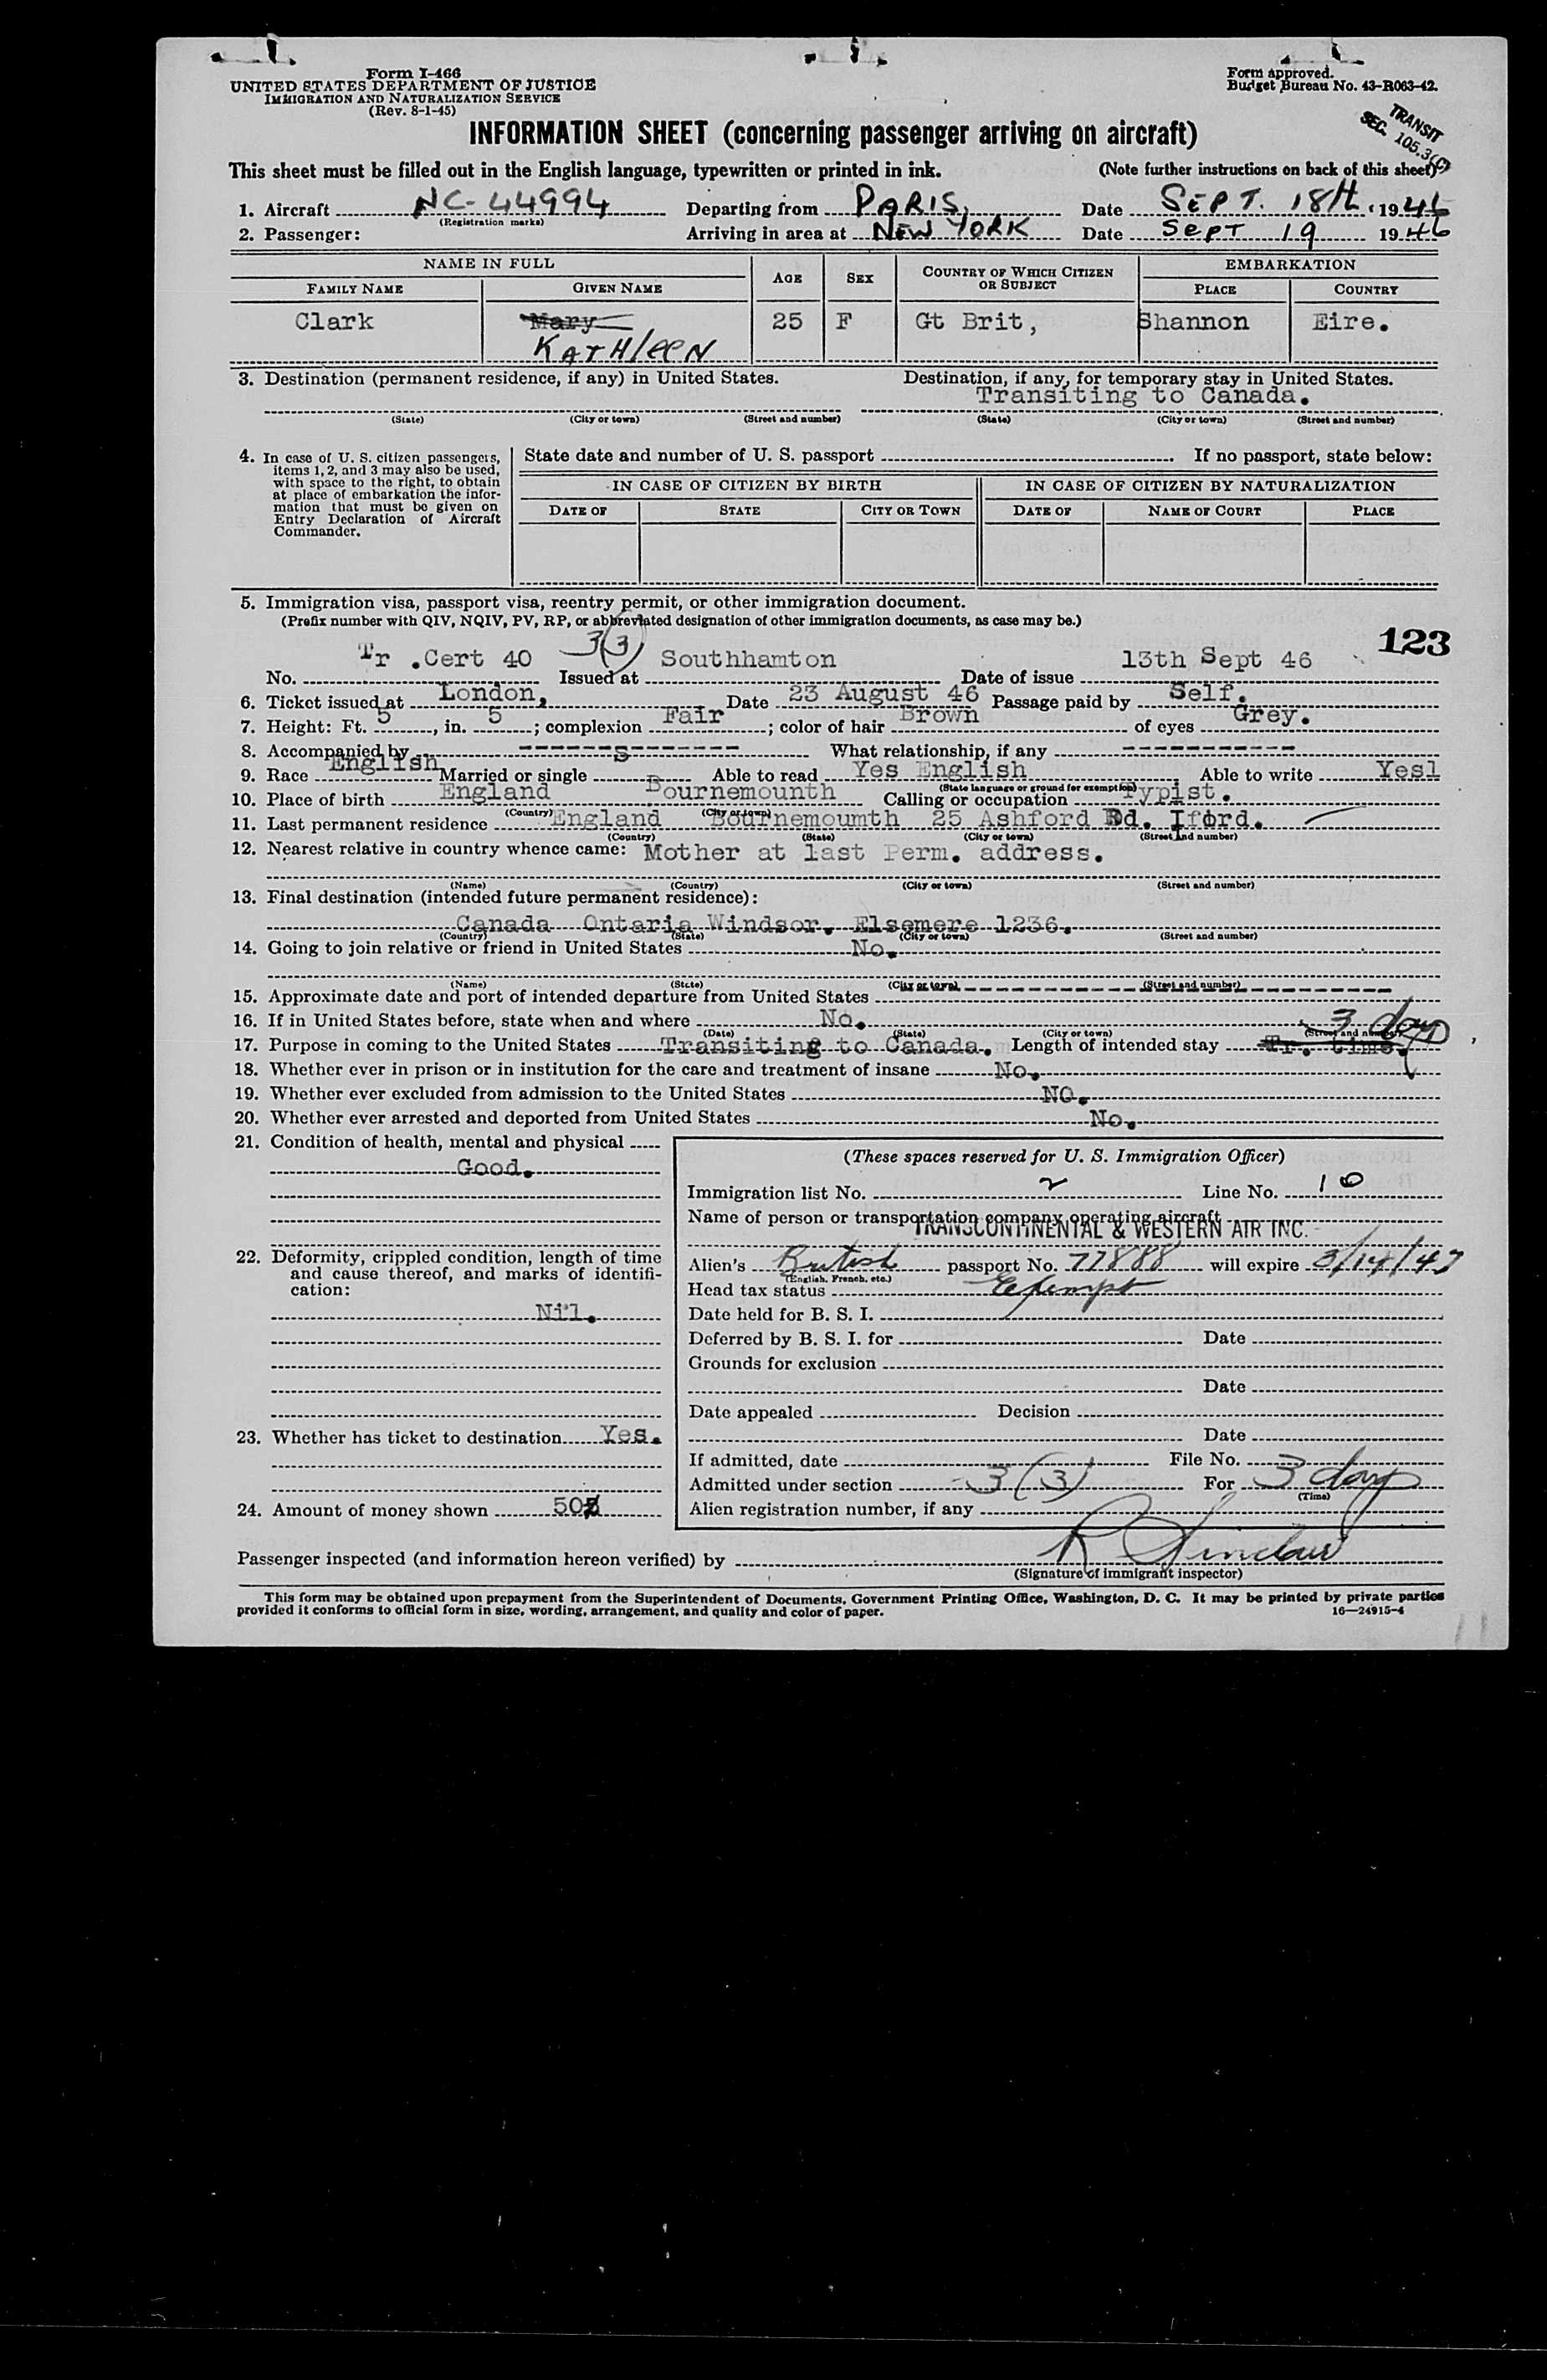 Form I-466
UNITED STATES DEPARTMENT OF JUSTICE
IMMIGRATION AND NATURALIZATION SERVICE
(Rev. 8-1-45)
Form approved.
Budget Bureau No. 43-R063-42.
TRANSIT
SEC. 105.3(C)
INFORMATION SHEET (concerning passenger arriving on aircraft)
This sheet must be filled out in the English language, typewritten or printed in ink. (Note further instructions on back of this sheet)
1. Aircraft NC-44994 Departing from PARIS, Date SEPT. 18th, 1946
(Registration marks)
2. Passenger: Arriving in area at NEW YORK Date SEPT 19 1946
NAME IN FULL AGE SEX COUNTRY OF WHICH CITIZEN OR SUBJECT EMBARKATION
FAMILY NAME GIVEN NAME PLACE COUNTRY
Clark Mary 25 F Gt Brit, Shannon Eire.
KATHLEEN
3. Destination (permanent residence, if any) in United States. Destination, if any, for temporary stay in United States.
Transiting to Canada.
(State) (City or town) (Street and number) (State) (City or town) (Street and number)
4. In case of U. S. citizen passengers, items 1, 2, and 3 may also be used, with space to the right, to obtain at place of embarkation the information that must be given on Entry Declaration of Aircraft Commander.
State date and number of U. S. passport If no passport, state below:
IN CASE OF CITIZEN BY BIRTH IN CASE OF CITIZEN BY NATURALIZATION
DATE OF STATE CITY OR TOWN DATE OF NAME OF COURT PLACE
5. Immigration visa, passport visa, reentry permit, or other immigration document.
(Prefix number with QIV, NQIV, PV, RP, or abbreviated designation of other immigration documents, as case may be.)
123
3(3)
No. Tr .Cert 40 Issued at Southhamton Date of issue 13th Sept 46
6. Ticket issued at London, Date 23 August 46 Passage paid by Self.
7. Height: Ft. 5, in. 5; complexion Fair; color of hair Brown of eyes Grey.
8. Accompanied by ---------------- What relationship, if any -----------
9. Race English Married or single S Able to read Yes English, Able to write Yesl
(State language or ground for exemption)
10. Place of birth England Bournemounth Calling or occupation Typist.
(Country) (City or town)
11. Last permanent residence England Bournemoumth 25 Ashford Rd. Iford.
(Country) (State) (City or town) (Street and number)
12. Nearest relative in country whence came: Mother at last Perm. address.
(Name) (Country) (City or town) (Street and number)
13. Final destination (intended future permanent residence):
Canada Ontaria Windsor. Elsemere 1236.
(Country) (State) (City or town) (Street and number)
14. Going to join relative or friend in United States No.
(Name) (State) (City or town) (Street and number)
15. Approximate date and port of intended departure from United States
16. If in United States before, state when and where No.
(Date) (State) (City or town) (Street and number)
3 days
17. Purpose in coming to the United States Transiting to Canada. Length of intended stay Tr. time.
18. Whether ever in prison or in institution for the care and treatment of insane No.
19. Whether ever excluded from admission to the United States NO.
20. Whether ever arrested and deported from United States No.
21. Condition of health, mental and physical
Good.
22. Deformity, crippled condition, length of time and cause thereof, and marks of identification:
Nil.
23. Whether has ticket to destination Yes.
24. Amount of money shown 50$
(These spaces reserved for U. S. Immigration Officer)
Immigration list No. 2 Line No. 10
Name of person or transportation company operating aircraft
TRANSCONTINENTAL & WESTERN AIR INC.
Alien's British passport No. 77888 will expire 3/14/47
(English, French, etc.)
Head tax status Exempt
Date held for B. S. I.
Deferred by B. S. I. for Date
Grounds for exclusion
Date
Date appealed Decision
Date
If admitted, date File No.
Admitted under section 3(3) For 3 days
(Time)
Alien registration number, if any
Passenger inspected (and information hereon verified) by R Sinclair
(Signature of immigrant inspector)
This form may be obtained upon prepayment from the Superintendent of Documents, Government Printing Office, Washington, D. C. It may be printed by private parties
provided it conforms to official form in size, wording, arrangement, and quality and color of paper. 16—24915-4